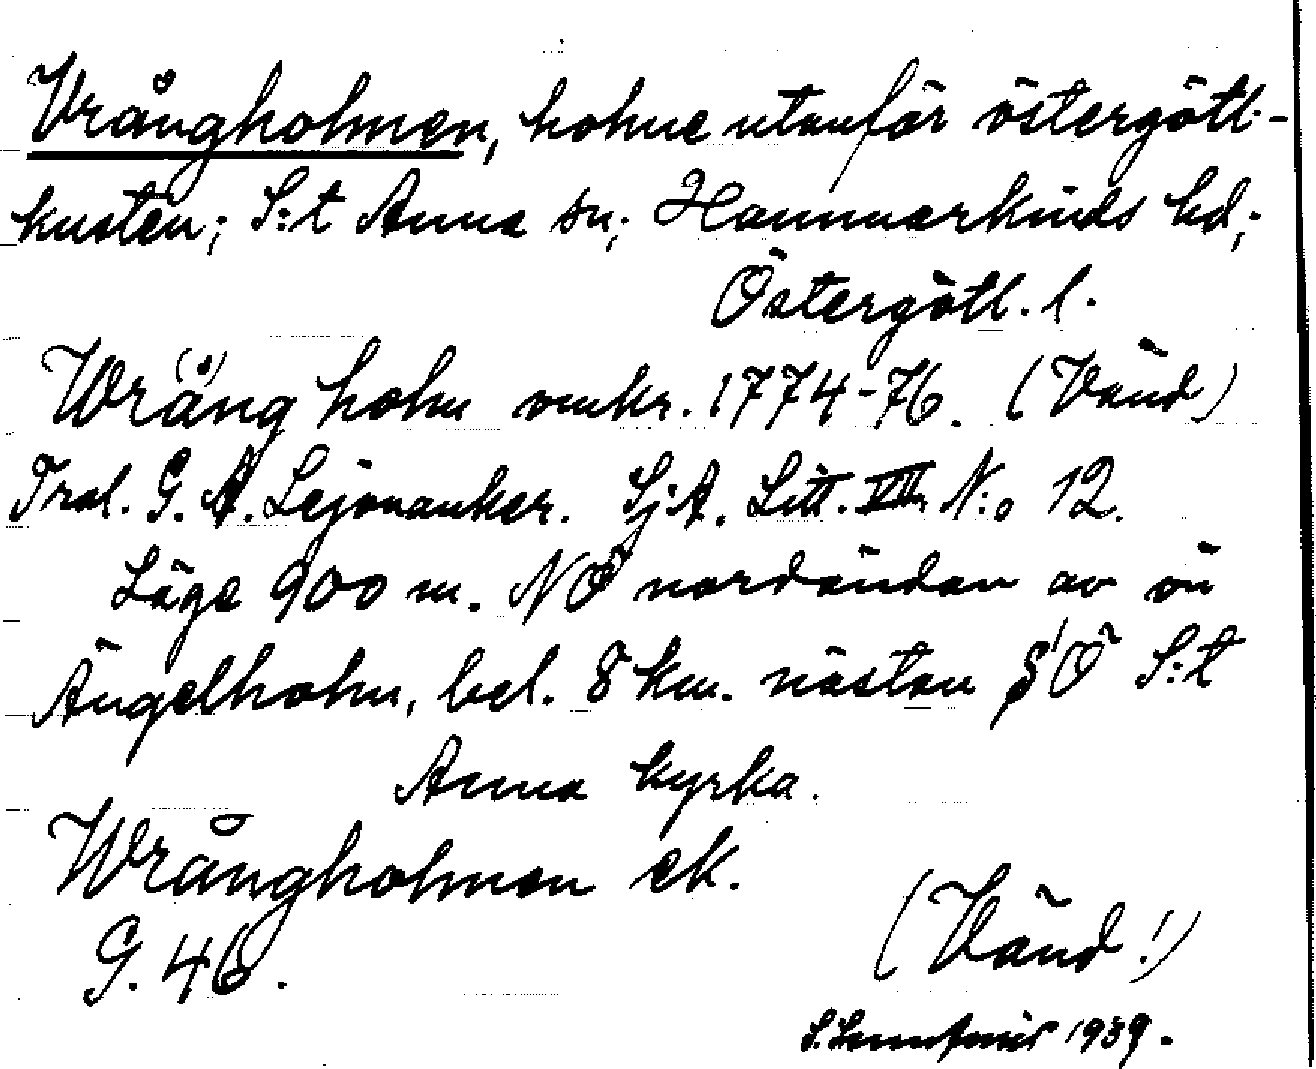 Vrångholmen, holme utanför östergötl.-
kusten; S:t Anna sn; Hammarkinds hd;
Östergötl. l.
Wräng(å) holm omkr. 1774-76. (Vänd)
Trol. G. A. Lejonanker. Sj:A. Litt. VIII N:o 12.
Läge 900 m. NÖ nordändan av ön
Ängelholm, bel. 8 km. nästan SÖ S:t
Anna kyrka.
Wrångholmen ek.
G. 46.
(Vänd!)
S. 1939.